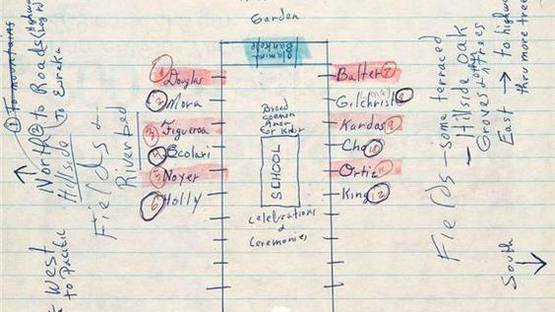 Garden
① Douglas
② Mora
③ Figueroa
④ Scolari
⑤ Noyer
⑥ Holly
Balter ⑦
Gilchrist ⑧
Kardos ⑨
Cho ⑩
Ortiz ⑪
King ⑫
Broad
common
Area
for kids
SCHOOL
Celebrations
&
Ceremonies
① To mountains
North ② to Roads
To Eureka
Hillside
Fields +
Riverbed
West
to Pacific
Fields - some terraced
- Hillside oak
Groves
East → to highway
thru more trees
South